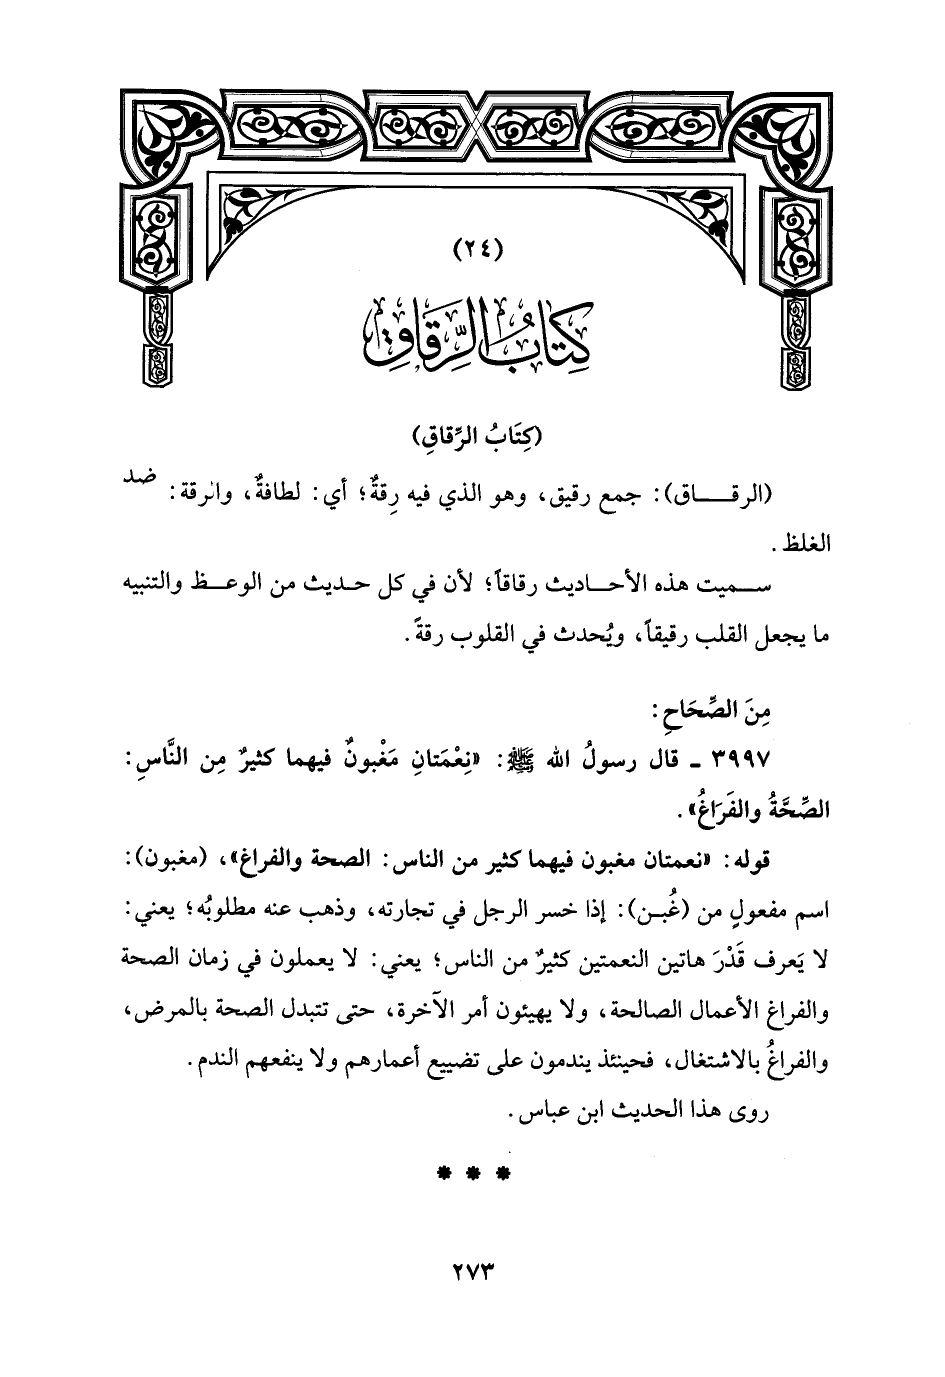 (٢٤)
كِتَابُ الرِّقَاقِ
(كِتَابُ الرِّقاقِ)
(الرقـــاق): جمع رقيق، وهو الذي فيه رِقةٌ؛ أي: لطافةٌ، والرقة: ضد
الغلظ.
ســميت هذه الأحــاديث رقاقاً؛ لأن في كل حـديث من الوعــظ والتنبيه
ما يجعل القلب رقيقاً، ويُحدث في القلوب رقةً.
مِنَ الصِّحَاحِ:
٣٩٩٧ ـ قال رسولُ الله ﷺ: «نِعْمَتانِ مَغْبونٌ فيهما كثيرٌ مِن النَّاسِ:
الصِّحَّةُ والفَرَاغُ».
قوله: «نعمتان مغبون فيهما كثير من الناس: الصحة والفراغ»، (مغبون):
اسم مفعولٍ من (غُبـن): إذا خسر الرجل في تجارته، وذهب عنه مطلوبُه؛ يعني:
لا يَعرف قَدْرَ هاتين النعمتين كثيرٌ من الناس؛ يعني: لا يعملون في زمان الصحة
والفراغ الأعمال الصالحة، ولا يهيئون أمر الآخرة، حتى تتبدل الصحة بالمرض،
والفراغُ بالاشتغال، فحينئذ يندمون على تضييع أعمارهم ولا ينفعهم الندم.
روى هذا الحديث ابن عباس.
* * *
٢٧٣